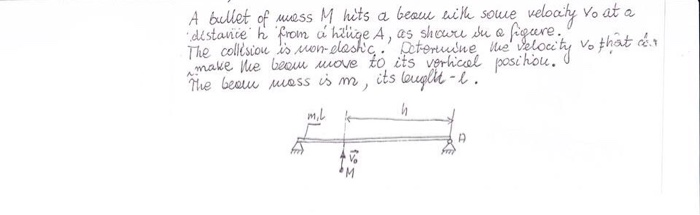 A bullet of mass M hits a beam with some velocity Vo at a
distance h from a hinge A, as shown in a figure.
The collision is non-elastic. Determine the velocity Vo that can
make the beam move to its vertical position.
The beam mass is m, its length - l.
m,l
h
A
V₀
M